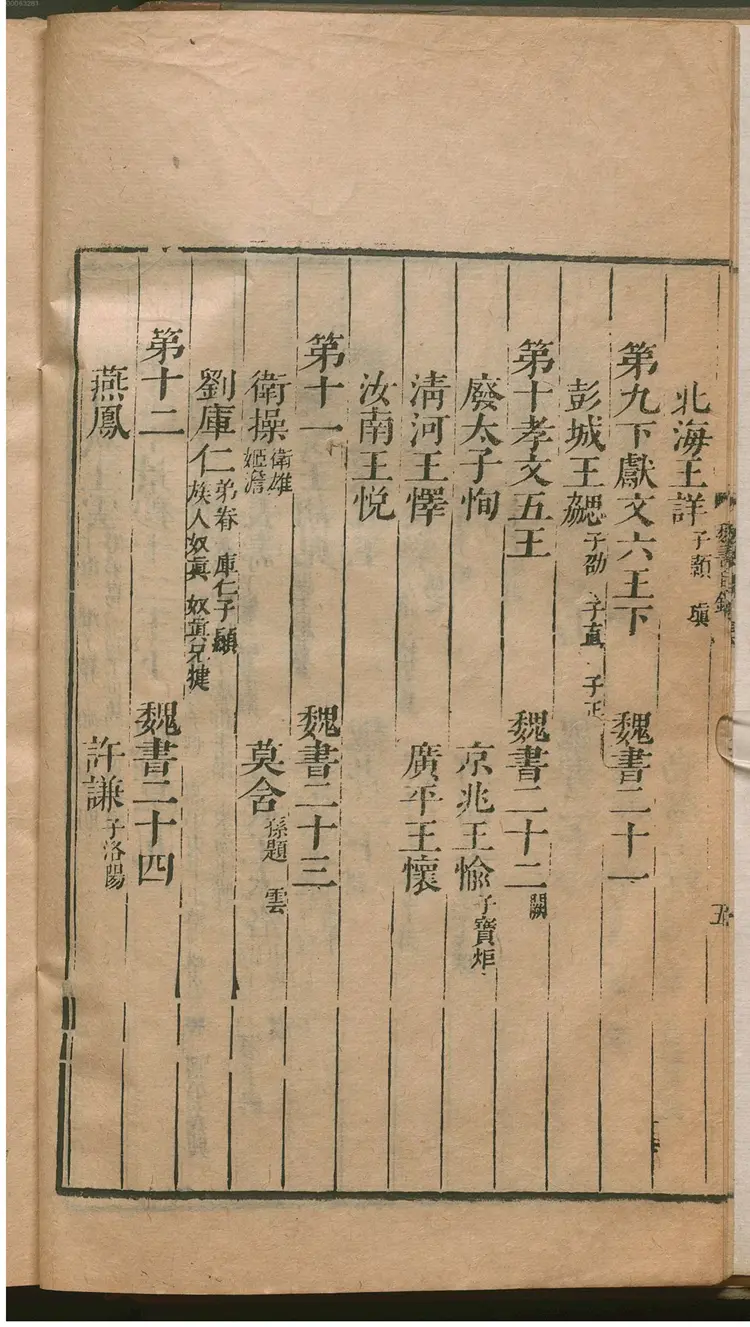 北海王詳 子顥 瑱
第九下獻文六王下 魏書二十一
彭城王勰 子劭 子直 子正
第十孝文五王 魏書二十二 闕
廢太子恂 京兆王愉 子寶炬
淸河王懌 廣平王懷
汝南王悅
第十一 魏書二十三
衛操 衛雄 姬澹 莫含 孫題 雲
劉庫仁 弟眷 庫仁子顯 族人奴眞 奴眞兄犍
第十二 魏書二十四
燕鳳 許謙 子洛陽
魏書目錄
五
00053283